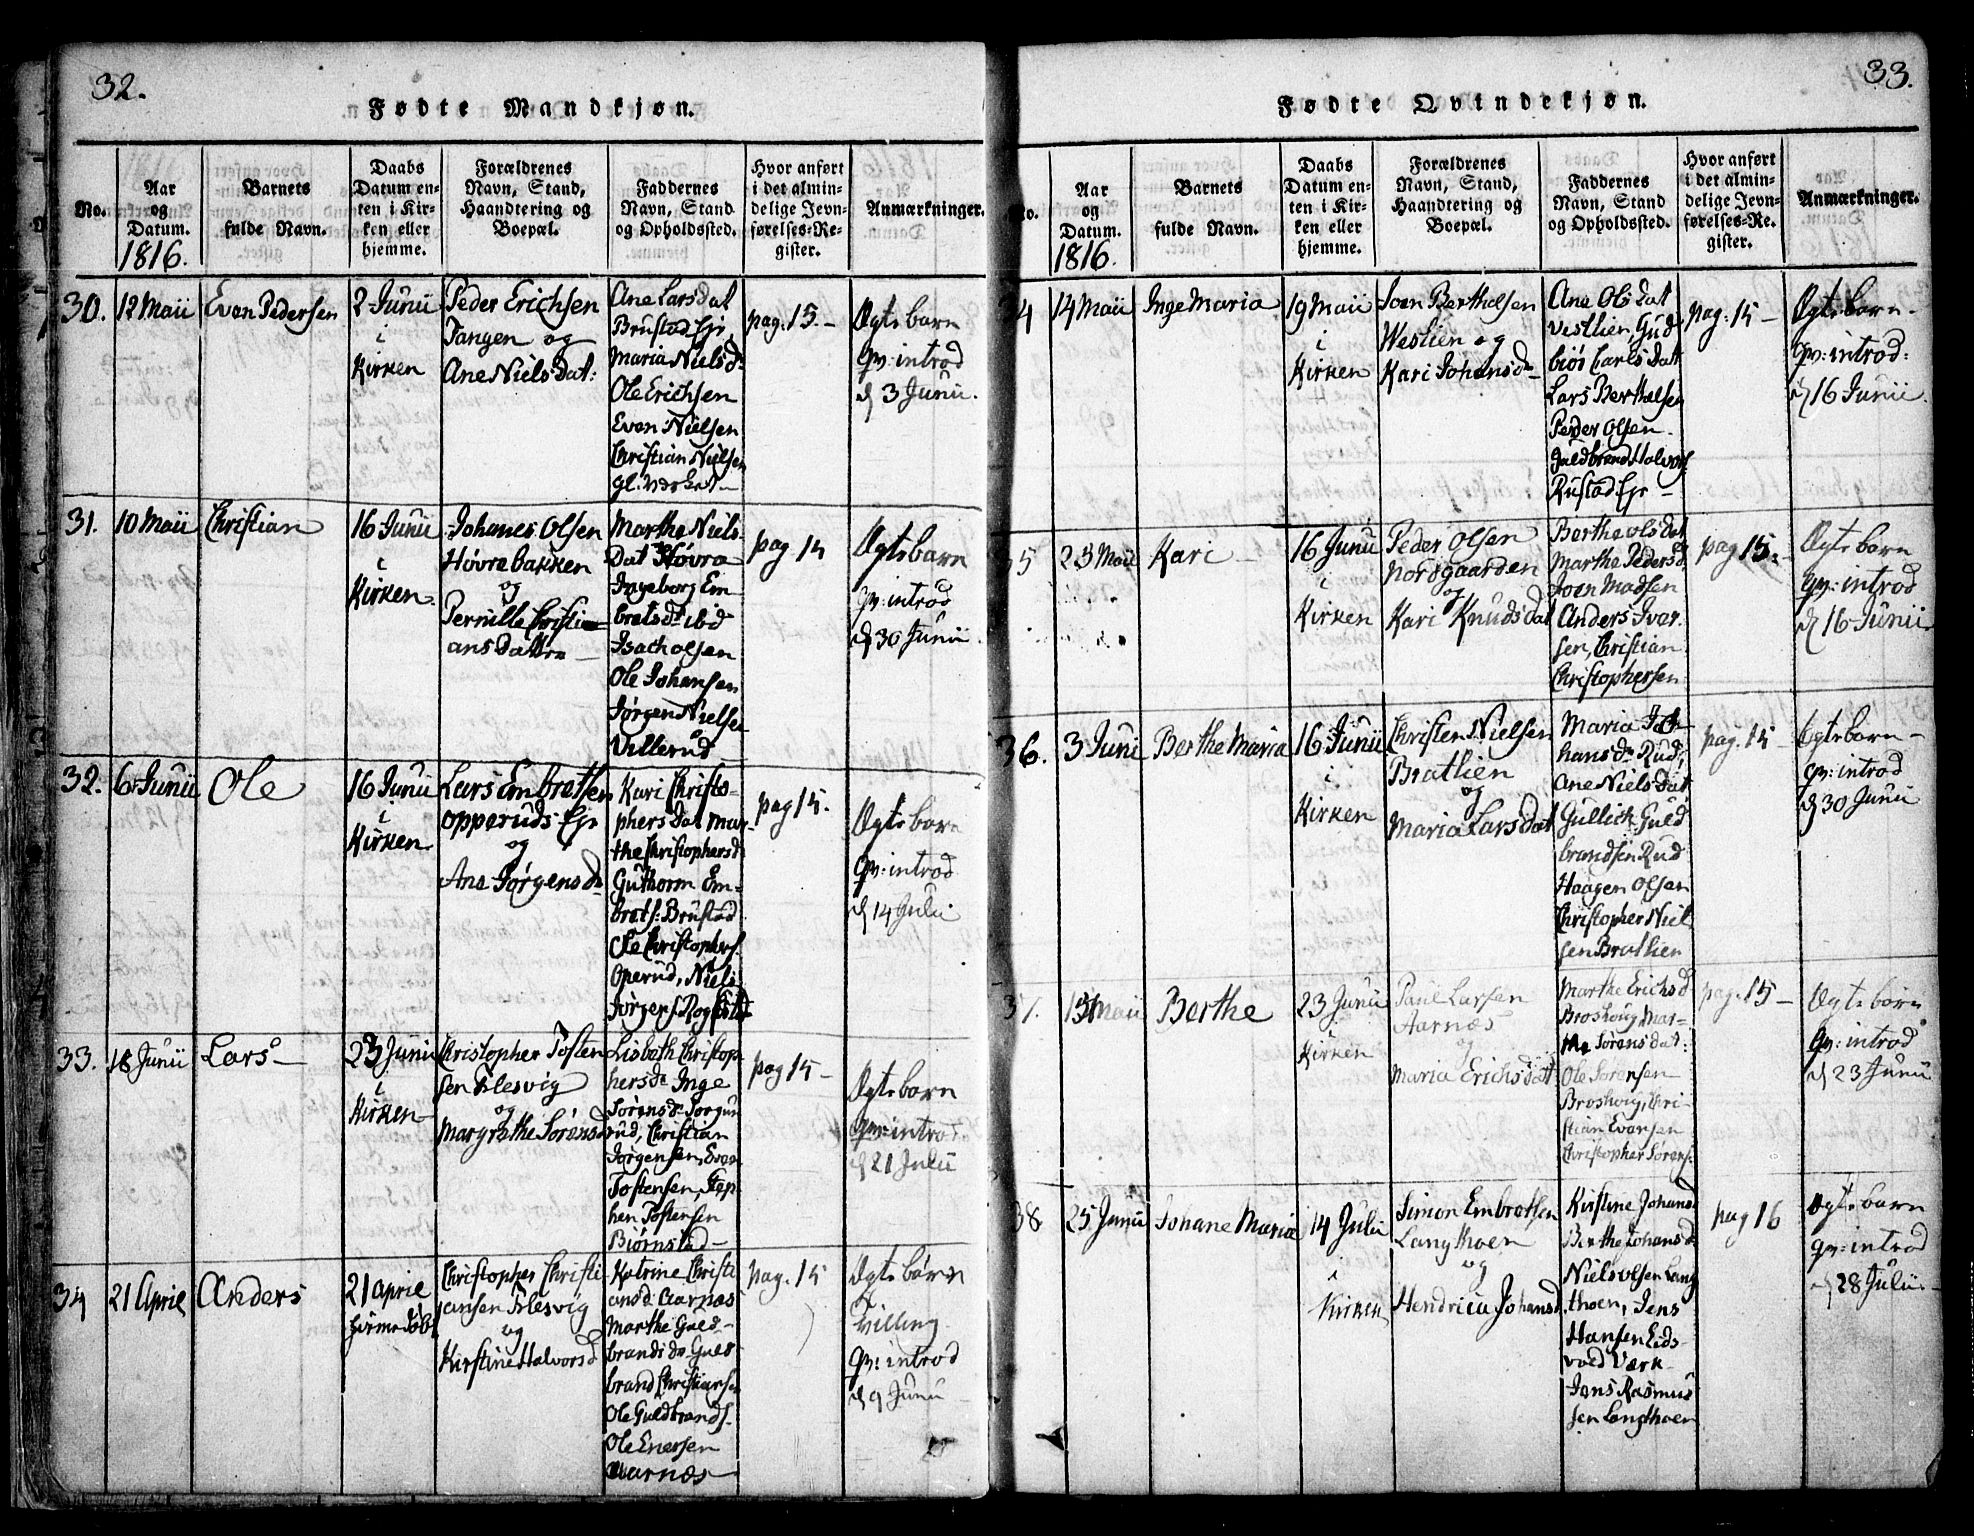 32.
Fødte Mandkjøn.
No.
Aar
og
Datum.
1816.
Barnets
fulde Navn.
Daabs
Datum en-
ten i Kir-
ken eller
hjemme.
Forældrenes
Navn, Stand,
Haandtering og
Boepæl.
Faddernes
Navn, Stand
og Opholdssted.
Hvor anført
i det almin-
delige Jevn-
førelses-Re-
gister.
Anmærkninger.
30.
12 Maii
Even Pedersen
2 Junii
i
Kirken
Peder Erichsen
Tangen og
Ane Nielsdat:
Ane Larsdat
Brustad Ejr
Maria Nielsd
Ole Erichsen
Even Nielsen
Christian Nielsen
gl. Værket
pag. 15.
Ægtebarn
qv: introd
d 3 Junii.
31.
10 Maii
Christian
16 Junii
i
Kirken
Johanes Olsen
Høvrebakken
og
Pernille Christi
ansdatter
Marthe Niels
Dat Høvra
Ingeborg Em
bretsd ibid
Isach Olsen
Ole Johansen
Jørgen Nielsen
Villerud
pag 14
Ægtebarn
qv: introd
d 30 Junii
32.
6 Junii
Ole
16 Junii
i
Kirken
Lars Embretsen
opperuds Ejr
og
Ane Jørgensd
Kari Christo-
phersdat Mar-
the Christophersd
Guthorm Em-
brets: Brustad
Ole Christophers.
Operud, Niels
Jørgens. Rogstad
pag 15.
Ægtebarn
qv: introd
d 14 Julii
33.
18 Junii
Lars
23 Junii
i
Kirken
Christopher Tosten
sen Flesvig
og
Margrethe Sørensd
Lisbeth Christop-
hersd Inge
Sørensd Sorgun
rud, Christian
Jørgensen, Even
Tostensen, Step-
hen Tostensen
Biørnstad
pag 15
Ægtebarn
qv: introd
d 21 Julii
34
21 Aprie
Anders
21 aprie
hiemedøbt
Christopher Christi
ansen Flesvig
og
Kirstine Halvorsd
Katrine Christi
ansd: Aarnæs
Marthe Guld-
brandsd Guld
brand Christiansen
Ole Guldbrands.
Ole Enersen
Aarnæs
pag. 15
Ægtebørn
Tvilling
qv: introd
d 9 Junii
33.
Fødte Qvindekjøn.
No.
Aar
og
Datum.
1816.
Barnets
fulde Navn.
Daabs
Datum en-
ten i Kir-
ken eller
hjemme.
Forældrenes
Navn, Stand,
Haandtering og
Boepæl.
Faddernes
Navn, Stand
og Opholdssted.
Hvor anført
i det almin-
delige Jevn-
førelses-Re-
gister.
Anmærkninger.
4
14 Maii
Inge Maria
19 Maii
i
Kirken
Joen Berthelsen
Westlien og
Kari Johansd
Ane Olsdat
Vestlien, Gud
biør Carlsdat
Lars Berthelsen
Peder Olsen
Guldbrand Halvors
Rustad Ejr
pag: 15
Ægtebarn.
qv: introd:
d 16 Junii.
5
23 Maii
Kari
16 Junii
i
Kirken
Peder Olsen
Nordgaarden
og
Kari Knudsdat
Berthe Olsdat
Marthe Pedersd
Joen Madsen
Anders Iver
sen, Christian
Christophersen
pag 15.
Ægtebarn
qv: introd
d 16 Junii
36.
3 Juni
Berthe Maria
16 Junii
i
Kirken
Christen Nielsen
Bratlien
og
Maria Larsdat
Maria Jo-
hansd Rud,
Ane Nielsdat
Gullich Guld
brandsen Rud
Haagen Olsen
Christopher Niel
sen Bratlien
pag. 15
Ægtebarn
qv: introd
d 30 Junii
37.
Maii
Berthe
23 Junii
i
Kirken
Paul Larsen
Aarnæs
og
Maria Erichsdat
Marthe Erichsd
Broshvig, Mar-
the Sørensdat:
Ole Sørensen
Broshvig, Chri-
stian Evensen
Christopher Sørens:
pag. 15
Ægtebarn
qv: introd
d 23 Junii
38
25 Junii
Johane Maria
14 Julii
i
Kirken
Simon Embretsen
Langthoen
og
Hendrica Johansd
Kirstine Johansd
Berthe Johansd
Niels Olsen Lang
thoen, Jens
Hansen Eids-
vold Værk
Jens Rasmus
sen Langthoen
pag 16
Ægtebarn
qv: introd
d 28 Julii